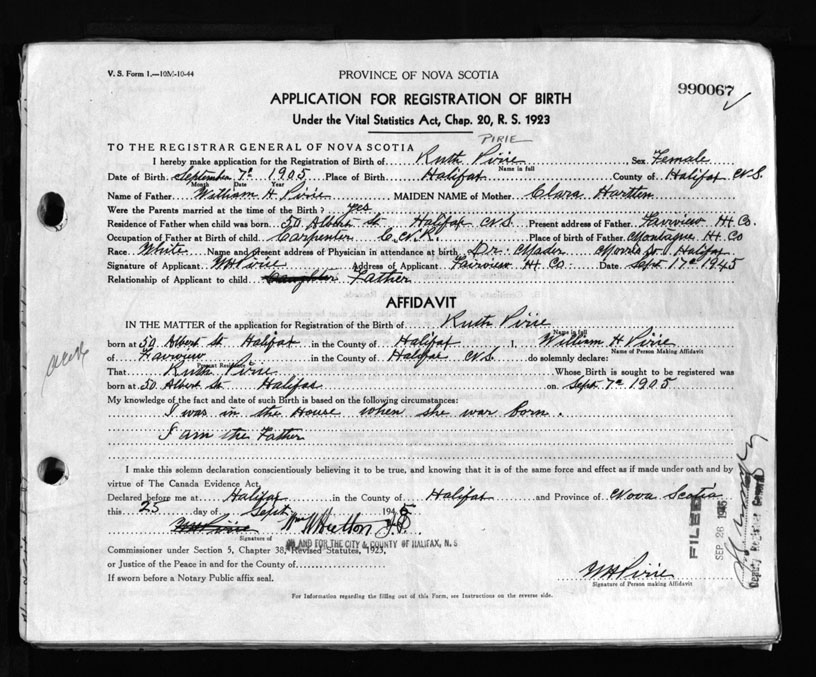 V. S. Form 1.—10M-10-44
PROVINCE OF NOVA SCOTIA
990067
APPLICATION FOR REGISTRATION OF BIRTH
Under the Vital Statistics Act, Chap. 20, R. S. 1923
TO THE REGISTRAR GENERAL OF NOVA SCOTIA
PIRIE
I hereby make application for the Registration of Birth of Ruth Pirie, Sex Female
Name in full
Date of Birth September 7th 1905 Place of Birth Halifax County of Halifax N.S.
Month Date Year
Name of Father William H Pirie MAIDEN NAME of Mother Clara Hartlen
Were the Parents married at the time of the Birth? yes
Residence of Father when child was born 50 Albert St. Halifax N.S. Present address of Father Fairview Hx Co.
Occupation of Father at Birth of child Carpenter C.N.R. Place of birth of Father Montague Hx Co
Race White Name and present address of Physician in attendance at birth Dr. Mader Morris St. Halifax
Signature of Applicant WH Pirie Address of Applicant Fairview Hx Co. Date Sept 17th 1945
Relationship of Applicant to child Daughter Father
AFFIDAVIT
IN THE MATTER of the application for Registration of the Birth of Ruth Pirie
Name in full
born at 50 Albert St Halifax in the County of Halifax I, William H Pirie
Name of Person Making Affidavit
of Fairview in the County of Halifax N.S. do solemnly declare:
Present Residence
That Ruth Pirie Whose Birth is sought to be registered was
born at 50 Albert St Halifax on Sept 7th 1905
My knowledge of the fact and date of such Birth is based on the following circumstances:
I was in the House when she was born.
I am the Father
I make this solemn declaration conscientiously believing it to be true, and knowing that it is of the same force and effect as if made under oath and by
virtue of The Canada Evidence Act,
Declared before me at Halifax in the County of Halifax and Province of Nova Scotia
this 25 day of Sept 1945
WH Pirie
Signature of
IN AND FOR THE CITY & COUNTY OF HALIFAX, N. S
Commissioner under Section 5, Chapter 38, Revised Statutes, 1923,
or Justice of the Peace in and for the County of
If sworn before a Notary Public affix seal.
WH Pirie
Signature of Person making Affidavit
For Information regarding the filling out of this Form, see Instructions on the reverse side.
FILED
SEP 26 1945
Deputy Registrar General